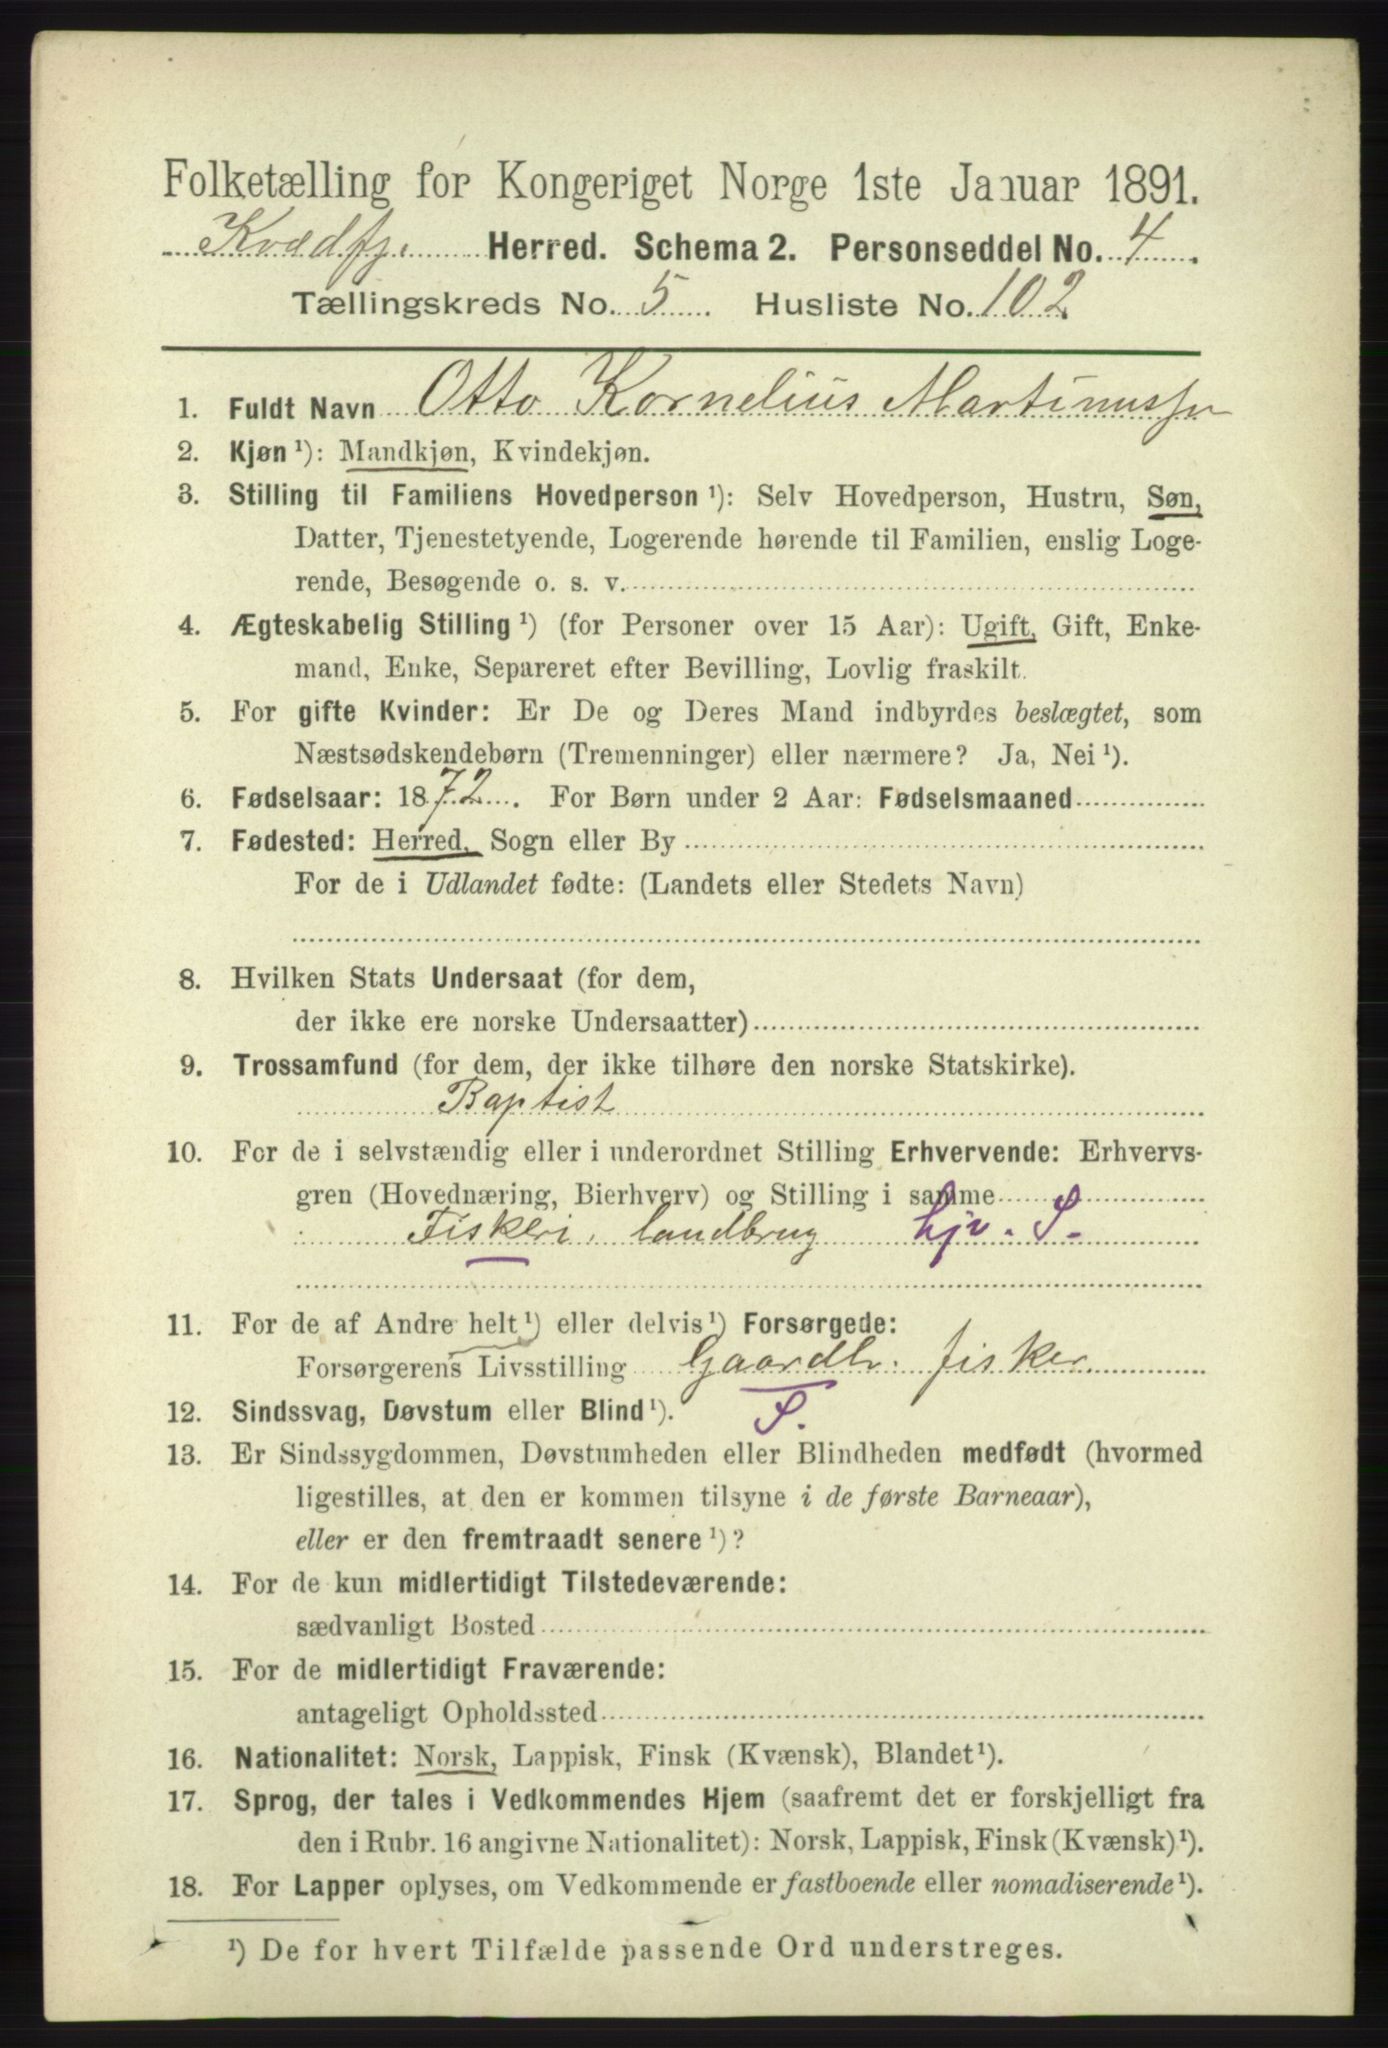 Folketælling for Kongeriget Norge 1ste Januar 1891.
Kvædfj. Herred. Schema 2. Personseddel No. 4.
Tællingskreds No. 5. Husliste No. 102
1. Fuldt Navn Otto Kornelius Martinussen
2. Kjøn ¹): Mandkjøn, Kvindekjøn.
3. Stilling til Familiens Hovedperson ¹): Selv Hovedperson, Hustru, Søn,
Datter, Tjenestetyende, Logerende hørende til Familien, enslig Loge-
rende, Besøgende o. s. v.
4. Ægteskabelig Stilling ¹) (for Personer over 15 Aar): Ugift, Gift, Enke-
mand, Enke, Separeret efter Bevilling, Lovlig fraskilt.
5. For gifte Kvinder: Er De og Deres Mand indbyrdes beslægtet, som
Næstsødskendebørn (Tremenninger) eller nærmere? Ja, Nei ¹).
6. Fødselsaar: 1872. For Børn under 2 Aar: Fødselsmaaned
7. Fødested: Herred, Sogn eller By
For de i Udlandet fødte: (Landets eller Stedets Navn)
8. Hvilken Stats Undersaat (for dem,
der ikke ere norske Undersaatter)
9. Trossamfund (for dem, der ikke tilhøre den norske Statskirke).
Baptist
10. For de i selvstændig eller i underordnet Stilling Erhvervende: Erhvervs-
gren (Hovednæring, Bierhverv) og Stilling i samme
Fiskeri, landbrug hjv. S.
11. For de af Andre helt ¹) eller delvis ¹) Forsørgede:
Forsørgerens Livsstilling Gaardbr. fisker
12. Sindssvag, Døvstum eller Blind ¹). S.
13. Er Sindssygdommen, Døvstumheden eller Blindheden medfødt (hvormed
ligestilles, at den er kommen tilsyne i de første Barneaar),
eller er den fremtraadt senere ¹)?
14. For de kun midlertidigt Tilstedeværende:
sædvanligt Bosted
15. For de midlertidigt Fraværende:
antageligt Opholdssted
16. Nationalitet: Norsk, Lappisk, Finsk (Kvænsk), Blandet ¹).
17. Sprog, der tales i Vedkommendes Hjem (saafremt det er forskjelligt fra
den i Rubr. 16 angivne Nationalitet): Norsk, Lappisk, Finsk (Kvænsk) ¹).
18. For Lapper oplyses, om Vedkommende er fastboende eller nomadiserende ¹).
¹) De for hvert Tilfælde passende Ord understreges.